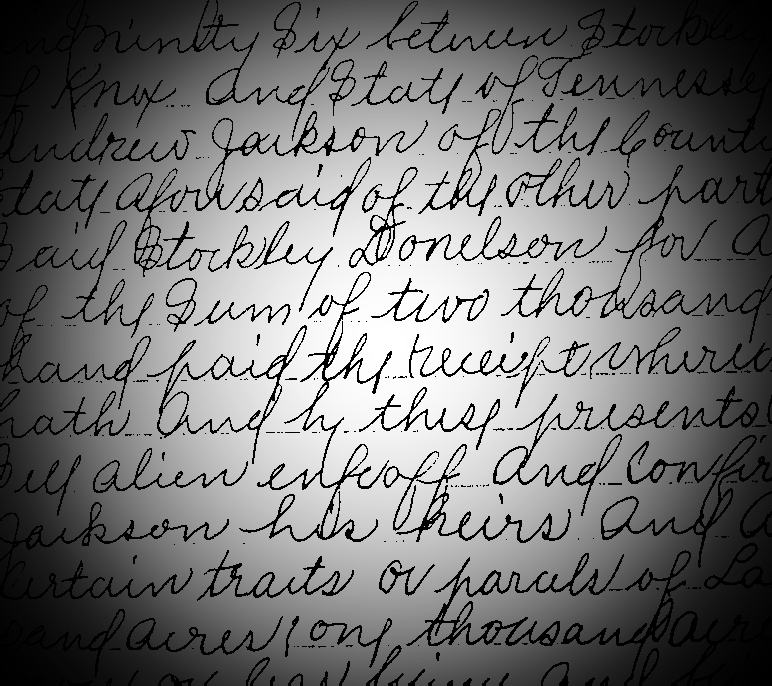 and ninety Six between Stockley
of Knox and State of Tennessee
Andrew Jackson of the County
State aforesaid of the other part
Said Stockley Donelson for a
of the Sum of two thousand
hand paid the receipt where
hath and by these presents
Sell alien enfeoff and Confir
Jackson his heirs and a
Certain tracts or parcels of La
sand acres one thousand acre
or less being and